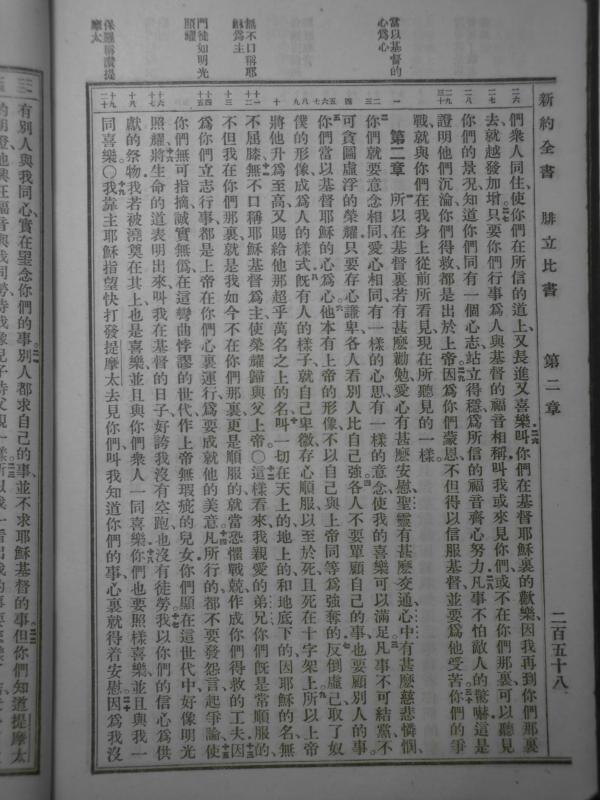 新約全書 腓立比書 第二章 二百五十八
們衆人同住、使你們在所信的道上、又長進又喜樂、叫你們在基督耶穌裏的歡樂、因我再到你們那裏
去、就越發加增。只要你們行事爲人、與基督的福音相稱、叫我或來見你們、或不在你們那裏、可以聽見
你們的景况、知道你們同有一個心志、站立得穩、爲所信的福音齊心努力。凡事不怕敵人的驚嚇、這是
證明他們沉淪、你們得救、都是出於上帝。因爲你們蒙恩、不但得以信服基督、並要爲他受苦。你們的爭
戰、就與你們在我身上從前所看見、現在所聽見的一樣。
第二章 所以在基督裏若有甚麼勸勉、愛心有甚麼安慰、聖靈有甚麼交通、心中有甚麼慈悲憐憫、
你們就要意念相同、愛心相同、有一樣的心思、有一樣的意念、使我的喜樂可以滿足。凡事不可結黨、不
可貪圖虛浮的榮耀、只要存心謙卑、各人看別人比自己强。各人不要單顧自己的事、也要顧別人的事。
你們當以基督耶穌的心爲心、他本有上帝的形像、不以自己與上帝同等爲强奪的、反倒虛己、取了奴
僕的形像、成爲人的樣式、旣有人的樣子、就自己卑微、存心順服、以至於死、且死在十字架上。所以上帝
將他升爲至高、又賜給他那超乎萬名之上的名、叫一切在天上的、地上的、和地底下的、因耶穌的名、無
不屈膝、無不口稱耶穌基督爲主、使榮耀歸與父上帝。○這樣看來、我親愛的弟兄、你們旣是常順服的、
不但我在你們那裏、就是我如今不在你們那裏、更是順服的、就當恐懼戰兢、作成你們得救的工夫、因
爲你們立志行事、都是上帝在你們心裏運行、爲要成就他的美意。凡所行的、都不要發怨言、起爭論、使
你們無可指摘、誠實無僞、在這彎曲悖謬的世代、作上帝無瑕疵的兒女、你們顯在這世代中、好像明光
照耀、將生命的道表明出來、叫我在基督的日子、好誇我沒有空跑、也沒有徒勞。我以你們的信心爲供
獻的祭物、我若被澆奠在其上、也是喜樂、並且與你們衆人一同喜樂。你們也要照樣喜樂、並且與我一
同喜樂。○我靠主耶穌指望快打發提摩太去見你們、叫我知道你們的事、心裏就得着安慰。因爲我沒
當以基督的
心爲心
無不口稱耶
穌爲主
門徒如明光
照耀
保羅稱讚提
摩太
有別人與我同心、實在望念你們的事。別人都求自己的事、並不求耶穌基督的事。但你們知道提摩太